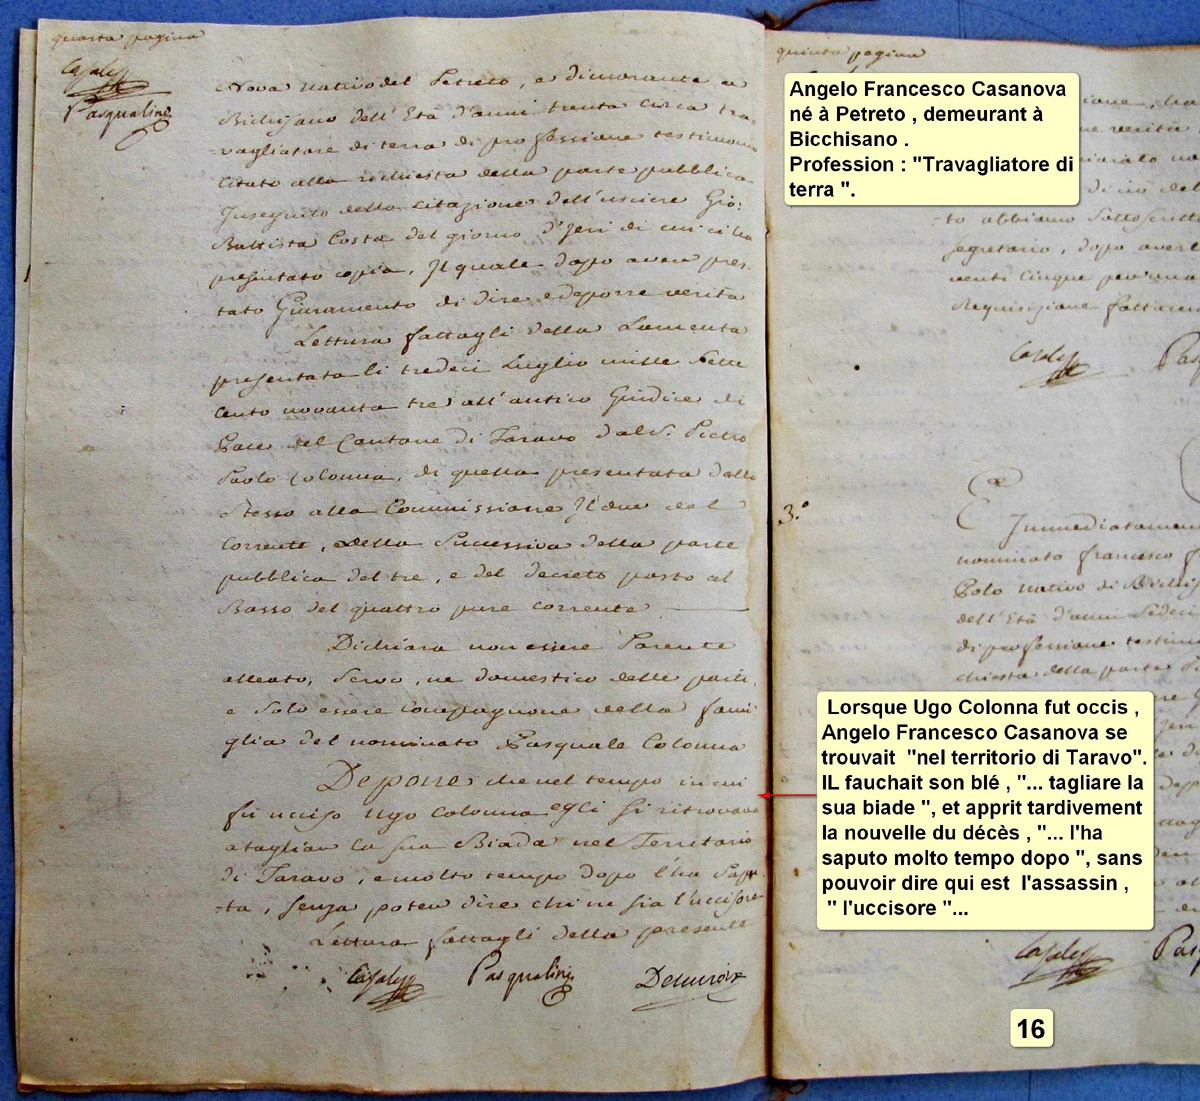 quarta pagina
Casalta
Pasqualini
nova nativo del Petreto, e dimorante a
Bichisano dell'Età d'anni trenta circa tra-
vagliatore di terra di professione testimonio
Citato alla richiesta della parte pubblica
Inseguito della Citazione dell'usciere Gio:
Battista Costa del giorno d'Jeri di cui ci ha
presentato copia, Il quale dopo aver pres-
tato Giuramento di dire e deporre verità
Lettura fattagli della Lamenta
presentata li tredeci Luglio mille Sette
cento novanta tre all'antico Giudice di
Pace del Cantone di Taravo dal S.r Pietro
Paolo Colonna, di quella presentata dallo
Stesso alla Commissione Il due del
Corrente, della Successiva della parte
pubblica del tre, e del decreto posto al
Basso del quattro pure corrente
Dichiara non essere Parente
alleato, Servo, ne domestico delle parti,
e Solo essere Compagnone della fami
glia del nominato Pasquale Colonna
Depone che nel tempo in cui
fù ucciso Ugo Colonna egli si ritrovava
a tagliare la sua Biada nel Territorio
di Taravo, e molto tempo dopo l'ha Sapu-
-ta, senza poter dire chi ne sia l'uccisore
Lettura fattagli della presente
Pasqualini
quinta pagina
Angelo Francesco Casanova
né à Petreto , demeurant à
Bicchisano .
Profession : "Travagliatore di
terra ".
verità
to abbiamo Sottoscritto
Segretario, dopo averl
venti Cinque per una
Requisizione fattacene
3.°
Immediatamen
nominato francesco
Polo nativo di Bichis
dell'Età d'anni Sedeci
di professione testim
chiesta della parte
Lorsque Ugo Colonna fut occis ,
Angelo Francesco Casanova se
trouvait "nel territorio di Taravo".
IL fauchait son blé , "... tagliare la
sua biade ", et apprit tardivement
la nouvelle du décès , "... l'ha
saputo molto tempo dopo ", sans
pouvoir dire qui est l'assassin ,
" l'uccisore "...
16